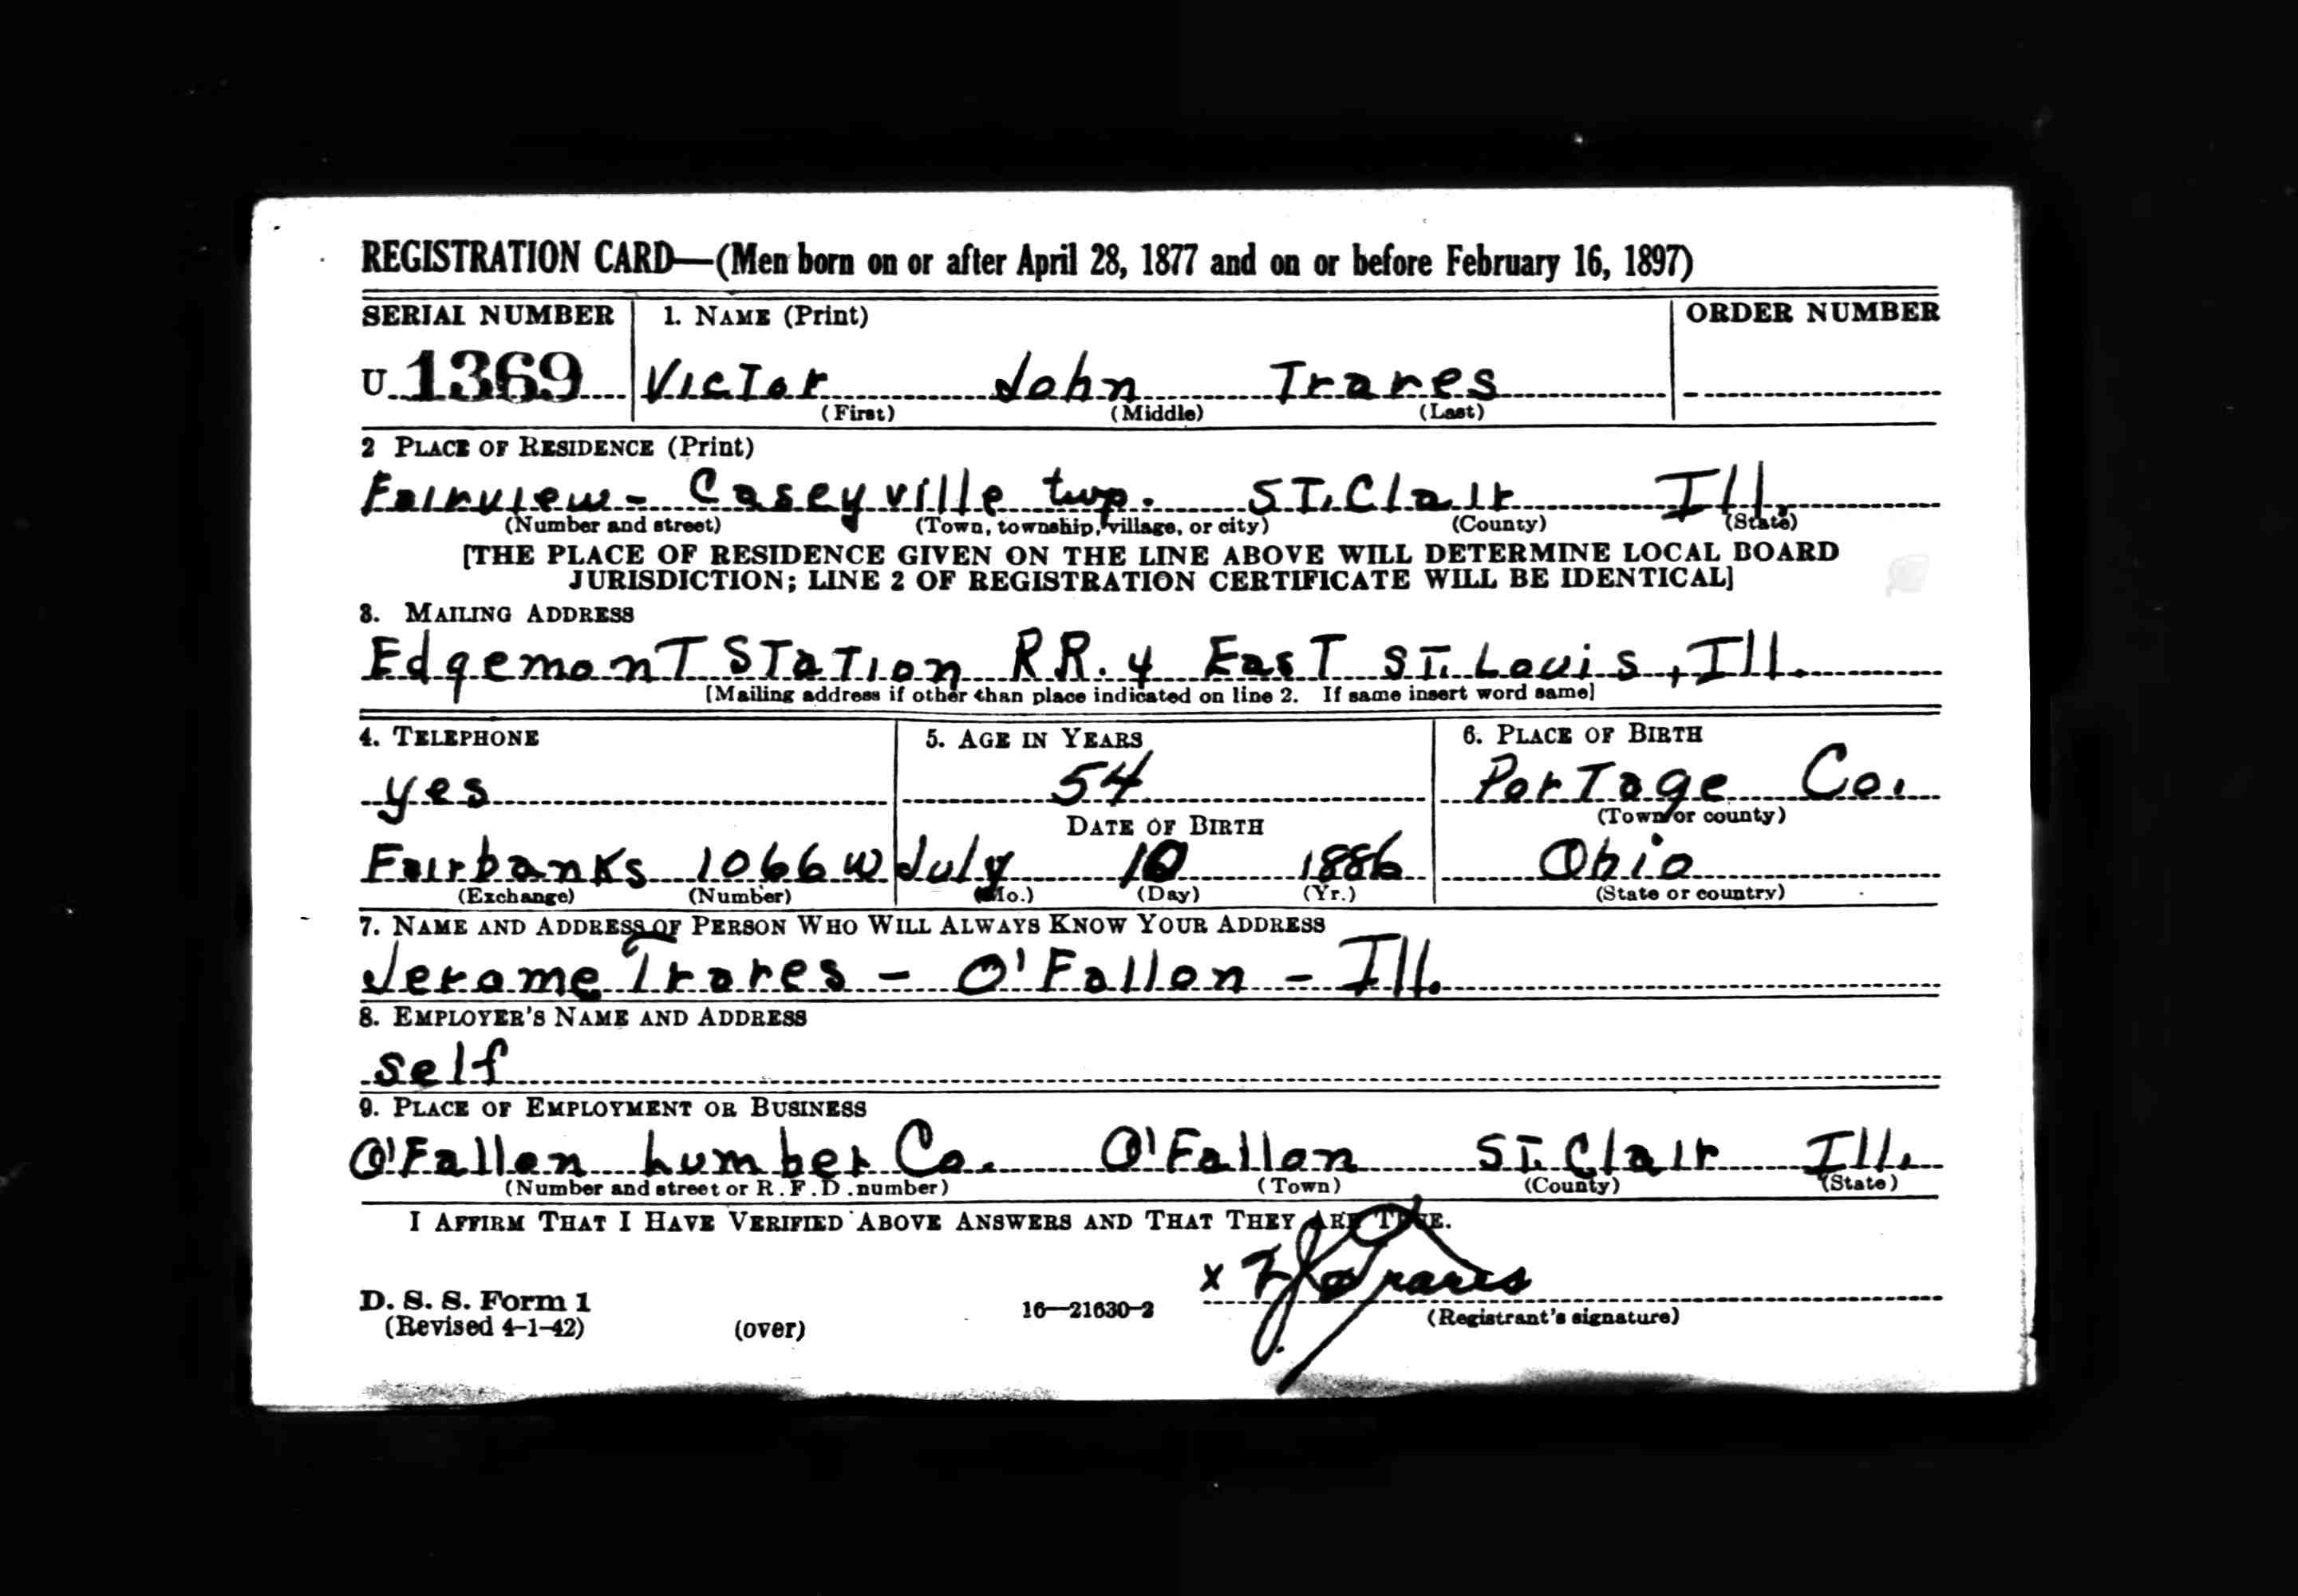 REGISTRATION CARD—(Men born on or after April 28, 1877 and on or before February 16, 1897)
SERIAL NUMBER 1. NAME (Print) ORDER NUMBER
U 1369 Victor John Trares
(First) (Middle) (Last)
2 PLACE OF RESIDENCE (Print)
Fairview - Caseyville twp. ST. Clair Ill.
(Number and street) (Town, township, village, or city) (County) (State)
[THE PLACE OF RESIDENCE GIVEN ON THE LINE ABOVE WILL DETERMINE LOCAL BOARD
JURISDICTION; LINE 2 OF REGISTRATION CERTIFICATE WILL BE IDENTICAL]
3. MAILING ADDRESS
Edgemont Station RR. 4 East St. Louis, Ill.
[Mailing address if other than place indicated on line 2. If same insert word same]
4. TELEPHONE 5. AGE IN YEARS 6. PLACE OF BIRTH
yes 54 Portage Co.
DATE OF BIRTH (Town or county)
Fairbanks 1066 W July 10 1886 Ohio
(Exchange) (Number) (Mo.) (Day) (Yr.) (State or country)
7. NAME AND ADDRESS OF PERSON WHO WILL ALWAYS KNOW YOUR ADDRESS
Jerome Trares - O'Fallon - Ill.
8. EMPLOYER'S NAME AND ADDRESS
self
9. PLACE OF EMPLOYMENT OR BUSINESS
O'Fallon Lumber Co. O'Fallon St. Clair Ill.
(Number and street or R.F.D. number) (Town) (County) (State)
I AFFIRM THAT I HAVE VERIFIED ABOVE ANSWERS AND THAT THEY ARE TRUE.
x V J Trares
D. S. S. Form 1 16—21630-2 (Registrant's signature)
(Revised 4-1-42) (over)